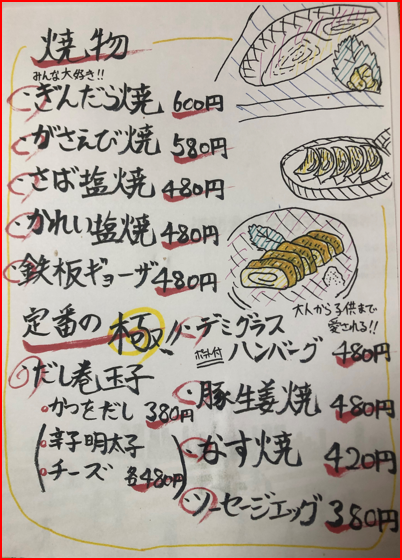 焼物
みんな大好き!!
・ぎんだら焼 600円
・がさえび焼 580円
・さば塩焼 480円
・かれい塩焼 480円
・鉄板ギョーザ 480円
定番の極!!
・だし巻玉子
・かつをだし 380円
辛子明太子
・チーズ 各480円
大人から子供まで
愛される!!
・デミグラス
ポテト付 ハンバーグ 480円
・豚生姜焼 480円
・なす焼 420円
・ソーセージエッグ 380円